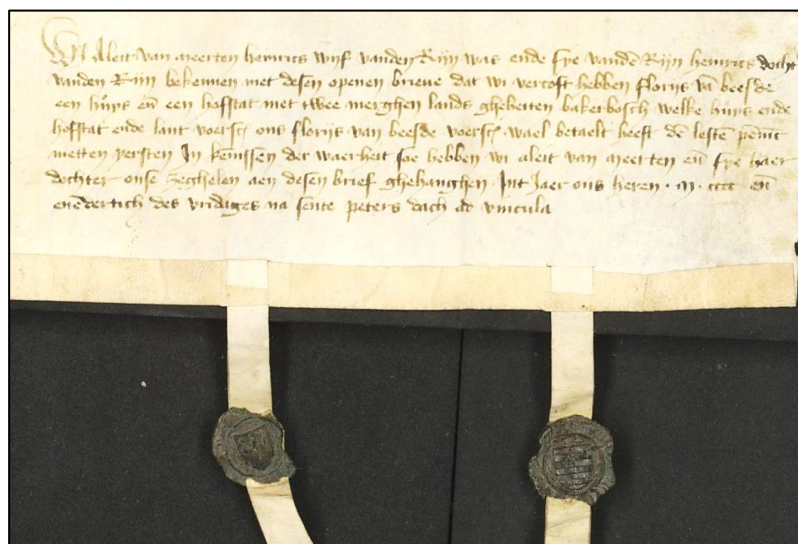 Wi Aleit van meerten henrics wijf vanden Rijn was ende fye vandē Rijn henrics docht
vanden Rijn bekennen met desen openen brieue dat wi vercoft hebben florijs vā beesde
een huys eñ een hofstat met twee merghen lands gheheiten bakerbosch welke huys ende
hofstat ende lant voersc̄ ons florijs van beesde voersc̄ wael betaelt heeft dē leste penīc
metten yersten In kēnissen der waerheit soe hebben wi aleit van meerten eñ fye haer
dochter onse zeghelen aen desen brief ghehanghen Int Jaer ons heren · m · cccc eñ
eneēdertich des vridages na sente peters dach ad vincula